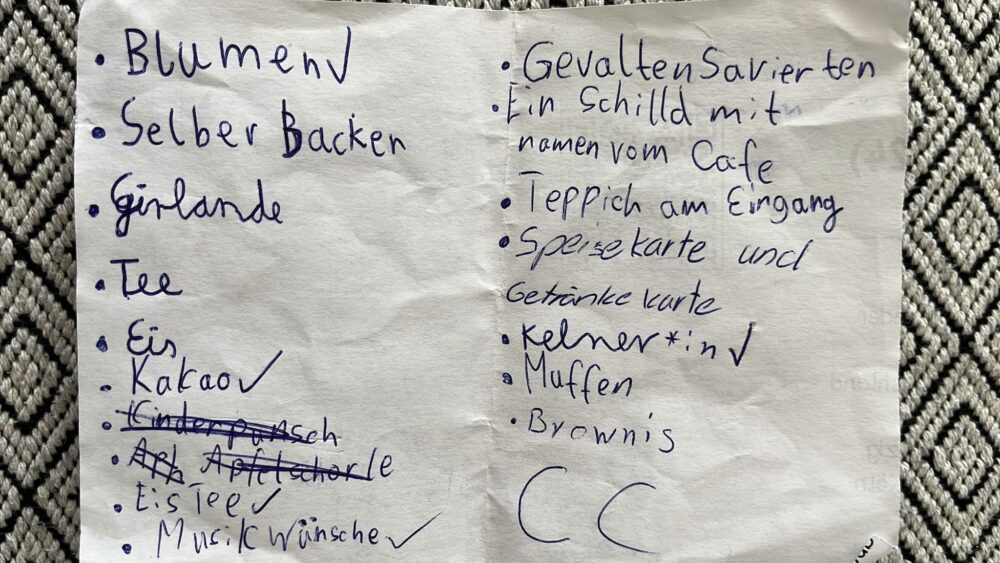 • Blumen ✓
• Selber Backen
• Girlande
• Tee
• Eis
• Kakao ✓
• Kinderpunsch
• Aph Apfelschorle
• Eis Tee ✓
• Musik Wünsche ✓
• Gevalten Savierten
• Ein Schilld mit
namen vom Cafe
• Teppich am Eingang
• Speisekarte und
Getränke karte
• Kelner*in ✓
• Muffen
• Brownis
C C